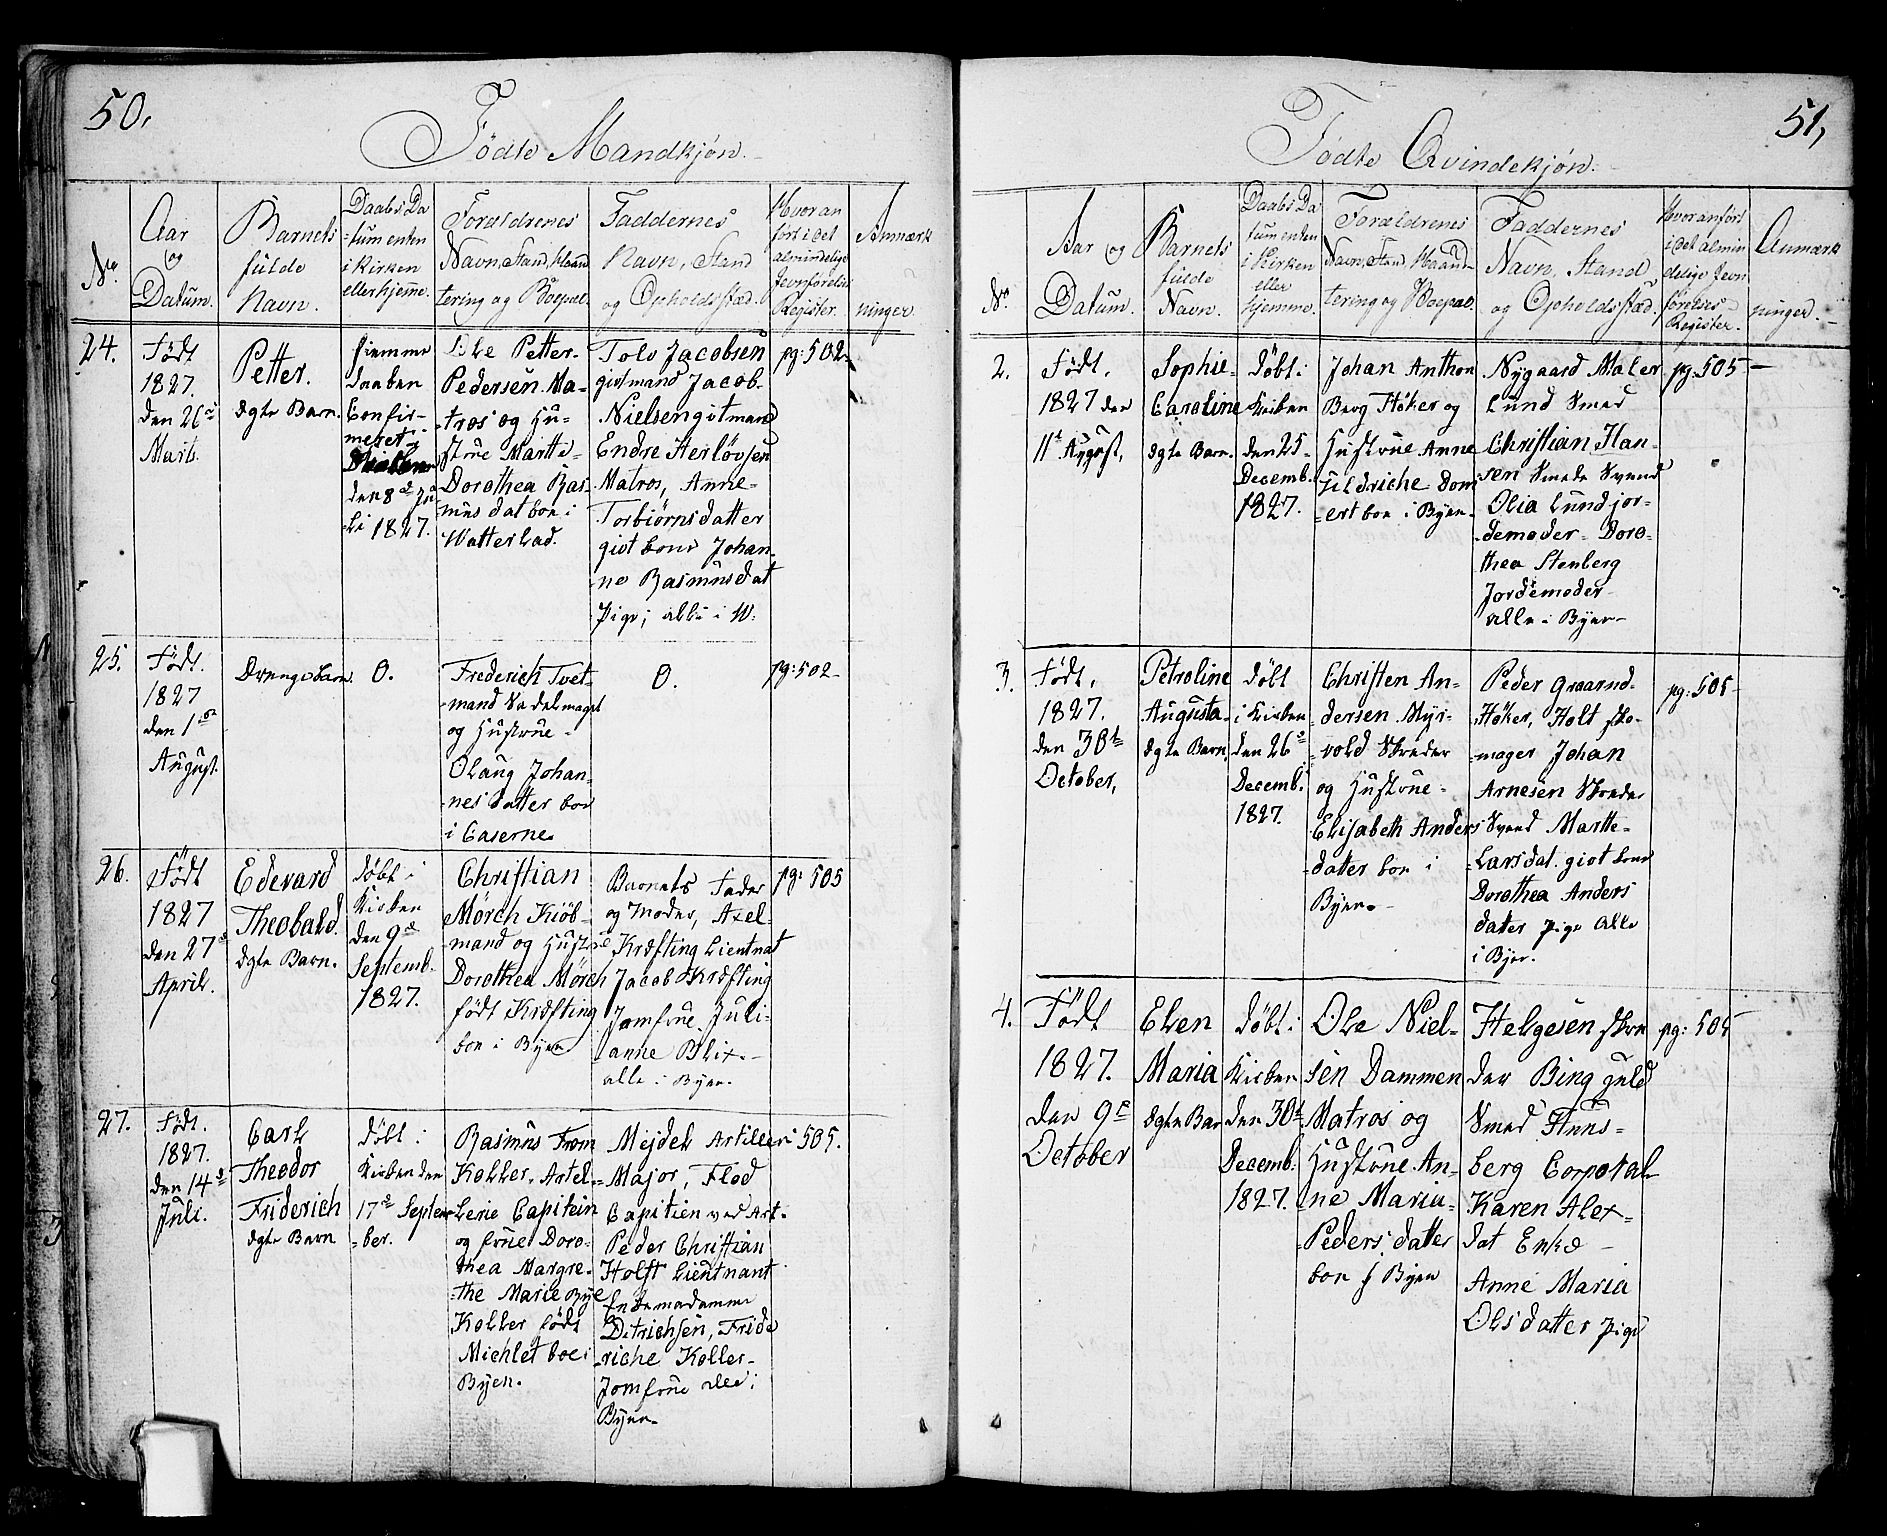 50.
Fødte Mandkjøn.
No.
Aar
og
Datum.
Barnets
fulde
Navn.
Daabs Da
tum enten
i Kirken
eller hjemme.
Forældrenes
Navn, Stand, Haand
tering og Boepæl.
Faddernes
Navn, Stand
og Opholdssted.
Hvor an
ført i det
almindelige
Jevnførelses
Register.
Anmærk
ninger.
24.
Født
1827.
den 26de
Marti.
Petter.
ægte Barn.
hiemme
daaben
Confir-
meret i
Kirken
den 8de Ju-
li 1827.
Ole Petter-
Pedersen Ma-
tros og Hu-
strue Marthe
Dorothea Ras-
musdat boe i
Watterlad.
Tolv Jacobsen
giftmand Jacob
Nielsen giftmand
Endre Herløvsen
Matros, Anne
Torbiørnsdatter
gift kone Johan-
ne Rasmusdat
Pige; alle i W.
pg: 502
25.
Født.
1827
den 1ste
August.
Drengebarn
0.
Frederich Tvet-
mand Sadelmager
og Hustrue
Olaug Johan-
nesdatter boe
i Caserne.
0.
pg: 502
26.
Født
1827
den 27de
April.
Edevard
Theobald.
ægte Barn.
døbt i
Kirken
den 9de
Septemb.
1827.
Christian
Mørch Kiøb-
mand og Hustrue
Dorothea Mørch
født Kræfting
boe i Byen
Barnets Fader
og Moder, Axel
Kræfting Lieutnat
Jacob Kræfting
Jomfrue Juli-
anne Blix
alle i Byen.
pg: 505
27.
Født.
1827.
den 14de
Juli.
Carl
Theodor
Friderich
ægte Barn
døbt i
Kirken den
17de Septem-
ber.
Rasmus From
Koller, Artel-
lerie Capitein
og frue Doro-
thea Margre-
the Marie Bye
Koller født
Michlet boe i
Byen.
Mejdel Artilleri
Major, Flod
Capitien ved Art.
Peder Christian
Holft Lieutnant
Enkemadamme
Ditrichsen, Fride
riche Koller-
Jomfrue alle i
Byen.
505.
51,
Fødte Qvindekjøn.
No.
Aar og
Datum.
Barnets
fulde
Navn.
Daabs Da
tum enten
i Kirken
eller
hjemme.
Forældrenes
Navn, Stand Haand
tering og Boepæl.
Faddernes
Navn, Stand
og Opholdssted.
Hvor anført
i det almin
delige Jevn
førelses
Register.
Anmærk
ninger.
2.
Født.
1827 den
11te August,
Sophie-
Caroline
ægte Barn.
døbt i
Kirken
den 25
Decemb.
1827.
Johan Anthon
Berg Høker og
Hustrue Anne
Uldriche Dom
ert boe i Byen.
Nygaard Maler
Lund Smed
Christian Han-
sen Smede Svend
Olia Lund jor-
demoder Doro-
thea Stenberg
Jordemoder
alle i Byen
pg: 505
3.
Født,
1827.
den 30te
October,
Petroline
Augusta
ægte Barn.
døbt
i Kirken
den 26de
Decemb.
1827.
Christen An-
dersen Myr-
vold Skreder
og Hustrue
Elisabeth Anders
datter boe i
Byen.
Peder Graarud
Høker, Holt sko-
mager Johan
Arnesen Skreder
Svend Marthe
Larsdat. gift kone
Dorothea Anders
datter Pige alle
i Byen.
pg: 505
4.
Født
1827.
den 9de
October
Elen
Maria
ægte Bar
døbt i
Kirken
den 30te
Decemb.
1827.
Ole Niel-
sen Dammen
Matros og
Hustrue An-
ne Maria
Pedersdatter
boe i Byen
Helgesen skre
der Bing guld
Smed Huns-
berg Corporal
Karen Alex-
dat Enke
Anne Maria
Olsdatter pige
pg: 505